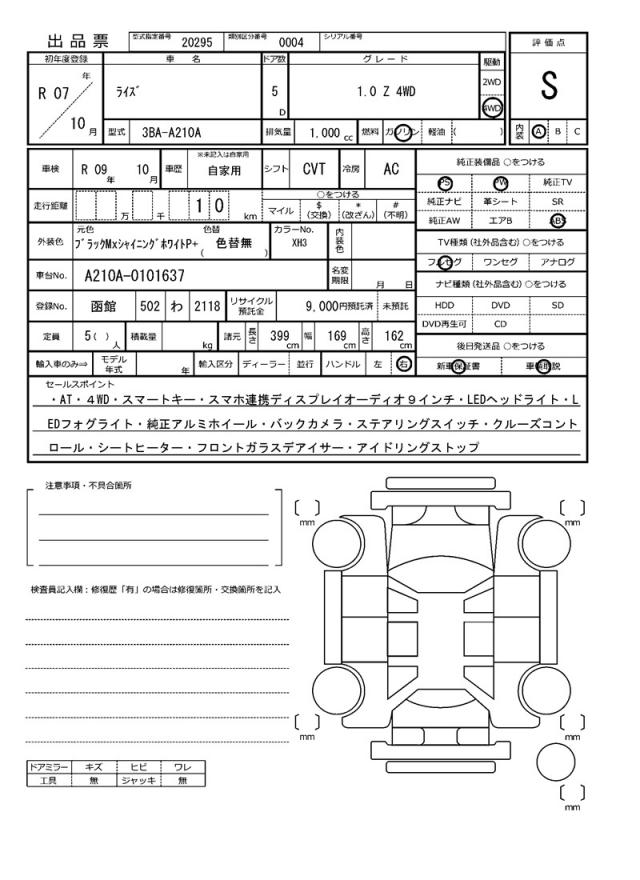 出品票
型式指定番号 20295 類別区分番号 0004 シリアル番号
評価点
S
初年度登録 車名 ドア数 グレード 駆動
R 07 年 10 月
ﾗｲｽﾞ
5 D
1.0 Z 4WD
2WD
4WD
型式 3BA-A210A 排気量 1.000 cc 燃料 ガソリン 軽油 ( )
内装 A B C
車検 R 09 年 10 月 車歴 ※未記入は自家用 自家用 シフト CVT 冷房 AC
純正装備品 ○をつける
PS PW 純正TV
純正ナビ 革シート SR
純正AW エアB ABS
走行距離 万 千 1 0 km
○をつける
マイル $(交換) *(改ざん) #(不明)
外装色 元色 ﾌﾞﾗｯｸMxｼｬｲﾆﾝｸﾞﾎﾜｲﾄP+ 色替 ( 色替無 )
カラーNo. XH3 内装色
TV種類(社外品含む)○をつける
フルセグ ワンセグ アナログ
車台No. A210A-0101637 名変期限 月 日
ナビ種類(社外品含む)○をつける
HDD DVD SD
DVD再生可 CD
登録No. 函館 502 わ 2118 リサイクル預託金 9,000円預託済 未預託
定員 5( )人 積載量 kg 諸元 長さ 399 cm 幅 169 cm 高さ 162 cm
後日発送品 ○をつける
新車保証書 車輌取説
輸入車のみ⇒ モデル年式 年 輸入区分 ディーラー 並行 ハンドル 左 右
セールスポイント
・AT・4WD・スマートキー・スマホ連携ディスプレイオーディオ9インチ・LEDヘッドライト・L
EDフォグライト・純正アルミホイール・バックカメラ・ステアリングスイッチ・クルーズコント
ロール・シートヒーター・フロントガラスデアイサー・アイドリングストップ
注意事項・不具合箇所
mm
mm
検査員記入欄：修復歴「有」の場合は修復箇所・交換箇所を記入
mm
mm
ドアミラー キズ ヒビ ワレ
工具 無 ジャッキ 無
mm